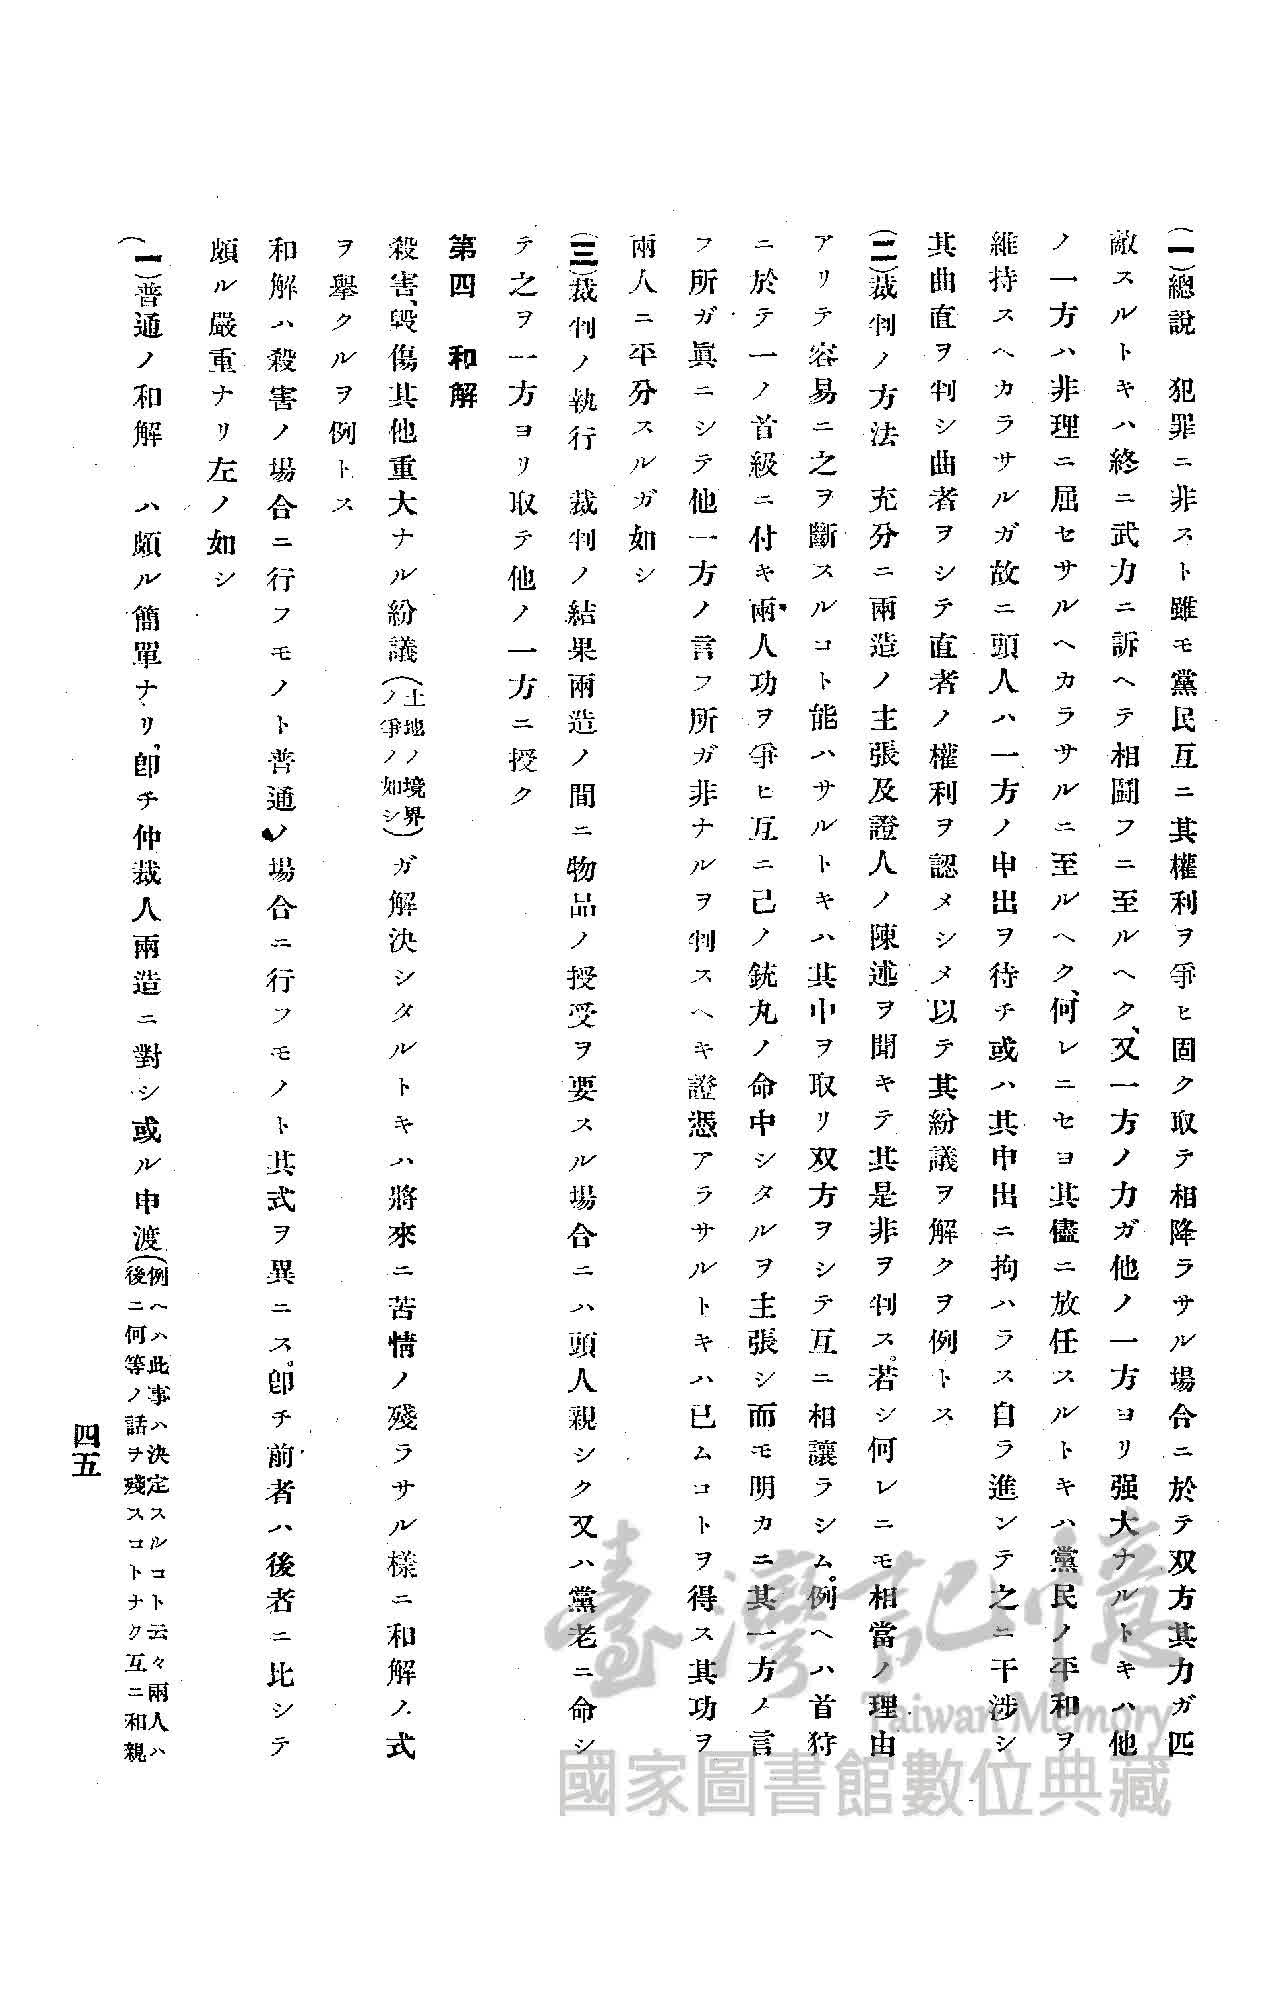 (一)總說　犯罪ニ非スト雖モ黨民互ニ其權利ヲ爭ヒ固ク取テ相降ラサル場合ニ於テ双方其力ガ匹
敵スルトキハ終ニ武力ニ訴ヘテ相鬪フニ至ルヘク、又一方ノ力ガ他ノ一方ヨリ强大ナルトキハ他
ノ一方ハ非理ニ屈セサルヘカラサルニ至ルヘク、何レニセヨ其儘ニ放任スルトキハ黨民ノ平和ヲ
維持スヘカラサルガ故ニ頭人ハ一方ノ申出ヲ待チ或ハ其申出ニ拘ハラス自ラ進ンテ之ニ干涉シ
其曲直ヲ判シ曲者ヲシテ直者ノ權利ヲ認メシメ以テ其紛議ヲ解クヲ例トス
(二)裁判ノ方法　充分ニ兩造ノ主張及證人ノ陳述ヲ聞キテ其是非ヲ判ス。若シ何レニモ相當ノ理由
アリテ容易ニ之ヲ斷スルコト能ハサルトキハ其中ヲ取リ双方ヲシテ互ニ相讓ラシム。例ヘハ首狩
ニ於テ一ノ首級ニ付キ兩人功ヲ爭ヒ互ニ己ノ銃丸ノ命中シタルヲ主張シ而モ明カニ其一方ノ言
フ所ガ眞ニシテ他一方ノ言フ所ガ非ナルヲ判スヘキ證憑アラサルトキハ已ムコトヲ得ス其功ヲ
兩人ニ平分スルガ如シ
(三)裁判ノ執行　裁判ノ結果兩造ノ間ニ物品ノ授受ヲ要スル場合ニハ頭人親シク又ハ黨老ニ命シ
テ之ヲ一方ヨリ取テ他ノ一方ニ授ク
第四　和解
殺害、毀傷其他重大ナル紛議(土地ノ境界ノ爭ノ如シ)ガ解決シタルトキハ將來ニ苦情ノ殘ラサル樣ニ和解ノ式
ヲ擧クルヲ例トス
和解ハ殺害ノ場合ニ行フモノト普通ノ場合ニ行フモノト其式ヲ異ニス。卽チ前者ハ後者ニ比シテ
頗ル嚴重ナリ左ノ如シ
(一)普通ノ和解　ハ頗ル簡單ナリ、卽チ仲裁人兩造ニ對シ或ル申渡(例ヘハ此事ハ決定スルコト云々兩人ハ後ニ何等ノ話ヲ殘スコトナク互ニ和親
四五
臺灣記憶
Taiwan Memory
國家圖書館數位典藏